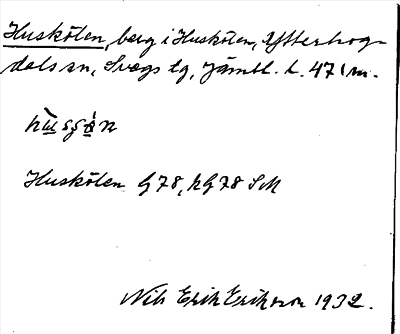 Huskölen, berg i Huskölen, Ytterhog-
dals sn, Svegs tg, Jämtl. l. 471 m.
Huskölen G78, hG78 SM
Nils Erik Erikson 1932.